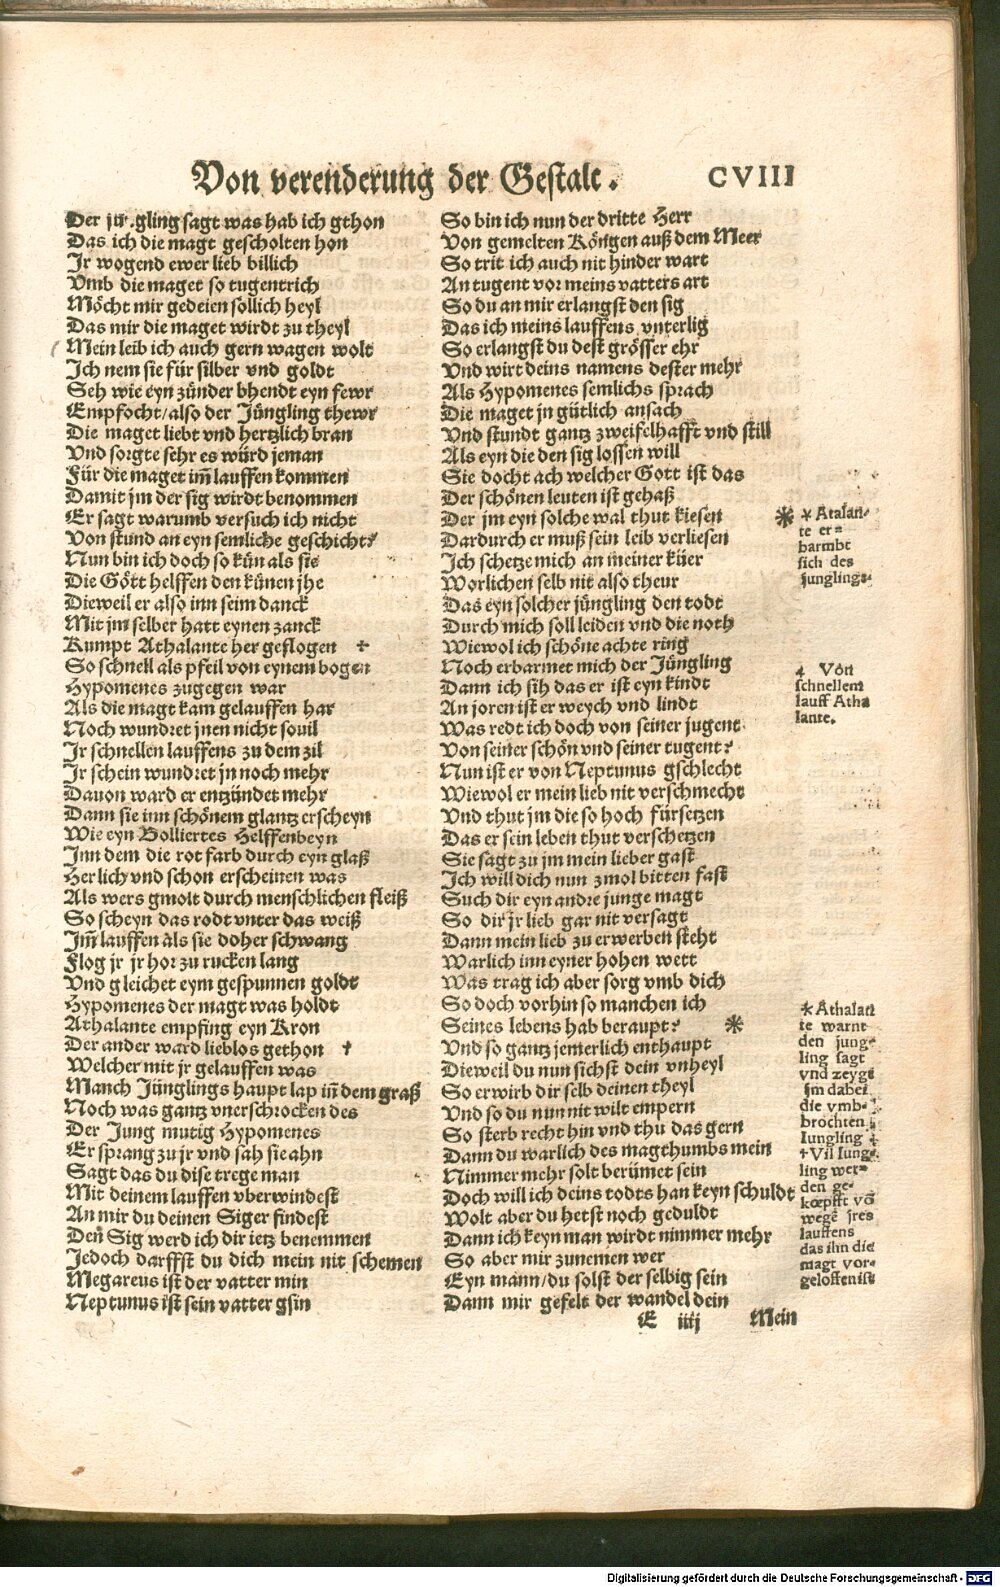 Von verenderung der Gestalt.
CVIII
Der jungling sagt was hab ich gthon
Das ich die magt gescholten hon
Jr wogend ewer lieb billich
Vmb die maget so tugentrich
Möcht mir gedeien sollich heyl
Das mir die maget wirdt zu theyl
Mein leib ich auch gern wagen wolt
Ich nem sie für silber vnd goldt
Seh wie eyn zünder bhendt eyn fewr
Empfocht/also der Jüngling thewr
Die maget liebt vnd hertzlich bran
Vnd sorgte sehr es würd jeman
Für die maget im̃ lauffen kommen
Damit jm der sig wirdt benommen
Er sagt warumb versuch ich nicht
Von stund an eyn semliche geschicht?
Nun bin ich doch so kün als sie
Die Gött helffen den künen jhe
Dieweil er also inn seim danck
Mit jm selber hatt eynen zanck
Kumpt Athalante her geflogen ✝
So schnell als pfeil von eynem bogen
Hypomenes zugegen war
Als die magt kam gelauffen har
Noch wundret jnen nicht souil
Jr schnellen lauffens zu dem zil
Jr schein wundret jn noch mehr
Dauon ward er entzündet mehr
Dann sie inn schönem glantz erscheyn
Wie eyn Bolliertes Helffenbeyn
Inn dem die rot farb durch eyn glaß
Herlich vnd schon erscheinen was
Als wers gmolt durch menschlichen fleiß
So scheyn das rodt vnter das weiß
Im̃ lauffen als sie doher schwang
Flog jr jr hor zu rucken lang
Vnd gleichet eym gespunnen goldt
Hypomenes der magt was holdt
Athalante empfing eyn Kron
Der ander ward lieblos gethon ✝
Welcher mit jr gelauffen was
Manch Jünglings haupt lag iñ dem graß
Noch was gantz vnerschrocken des
Der Jung mutig Hypomenes
Er sprang zu jr vnd sah sie ahn
Sagt das du dise trege man
Mit deinem lauffen vberwindest
An mir du deinen Siger findest
Deñ Sig werd ich dir ietz benemmen
Jedoch darffst du dich mein nit schemen
Megareus ist der vatter min
Neptunus ist sein vatter gsin
So bin ich nun der dritte Herr
Von gemelten Köngen auß dem Meer
So trit ich auch nit hinder wart
An tugent vor meins vatters art
So du an mir erlangst den sig
Das ich meins lauffens vnterlig
So erlangst du dest grösser ehr
Vnd wirt deins namens dester mehr
Als Hypomenes semlichs sprach
Die maget jn gütlich ansach
Vnd stundt gantz zweifelhafft vnd still
Als eyn die den sig lossen will
Sie docht ach welcher Gott ist das
Der schönen leuten ist gehaß
Der jm eyn solche wal thut kiesen ✻
Dardurch er muß sein leib verliesen
Ich schetze mich an meiner küer
Worlichen selb nit also theur
Das eyn solcher jüngling den todt
Durch mich soll leiden vnd die noth
Wiewol ich schöne achte ring
Noch erbarmet mich der Jüngling
Dann ich sih das er ist eyn kindt
An joren ist er weych vnd lindt
Was redt ich doch von seiner jugent
Von seiner schön vnd seiner tugent?
Nun ist er von Neptunus gschlecht
Wiewol er mein lieb nit verschmecht
Vnd thut jm die so hoch fürsetzen
Das er sein leben thut verschetzen
Sie sagt zu jm mein lieber gast
Ich will dich nun zmol bitten fast
Such dir eyn andre junge magt
So dir jr lieb gar nit versagt
Dann mein lieb zu erwerben steht
Warlich inn eyner hohen wett
Was trag ich aber sorg vmb dich
So doch vorhin so manchen ich
Seines lebens hab beraupt? ✻
Vnd so gantz jemerlich enthaupt
Dieweil du nun sichst dein vnheyl
So erwirb dir selb deinen theyl
Vnd so du nun nit wilt empern
So sterb recht hin vnd thu das gern
Dann du warlich des magthumbs mein
Nimmer mehr solt berümet sein
Doch will ich deins todts han keyn schuldt
Wolt aber du hetst noch geduldt
Dann ich keyn man wirdt nimmer mehr
So aber mir zunemen wer
Eyn mann/du solst der selbig sein
Dann mir gefelt der wandel dein
E iiij Mein
✻ Atalan-
te er=
barmbt
sich des
junglings
✝ Von
schnellem
lauff Atha
lante.
✻ Athalan
te warnt
den jung-
ling sagt
vnd zeygt
jm dabei
die vmb-
brochten
Iungling
✝ Vil Iung
ling wer-
den ge-
kœpfft võ
wegẽ jres
lauffens
das ihn die
magt vor-
geloffen ist
Digitalisierung gefördert durch die Deutsche Forschungsgemeinschaft - DFG